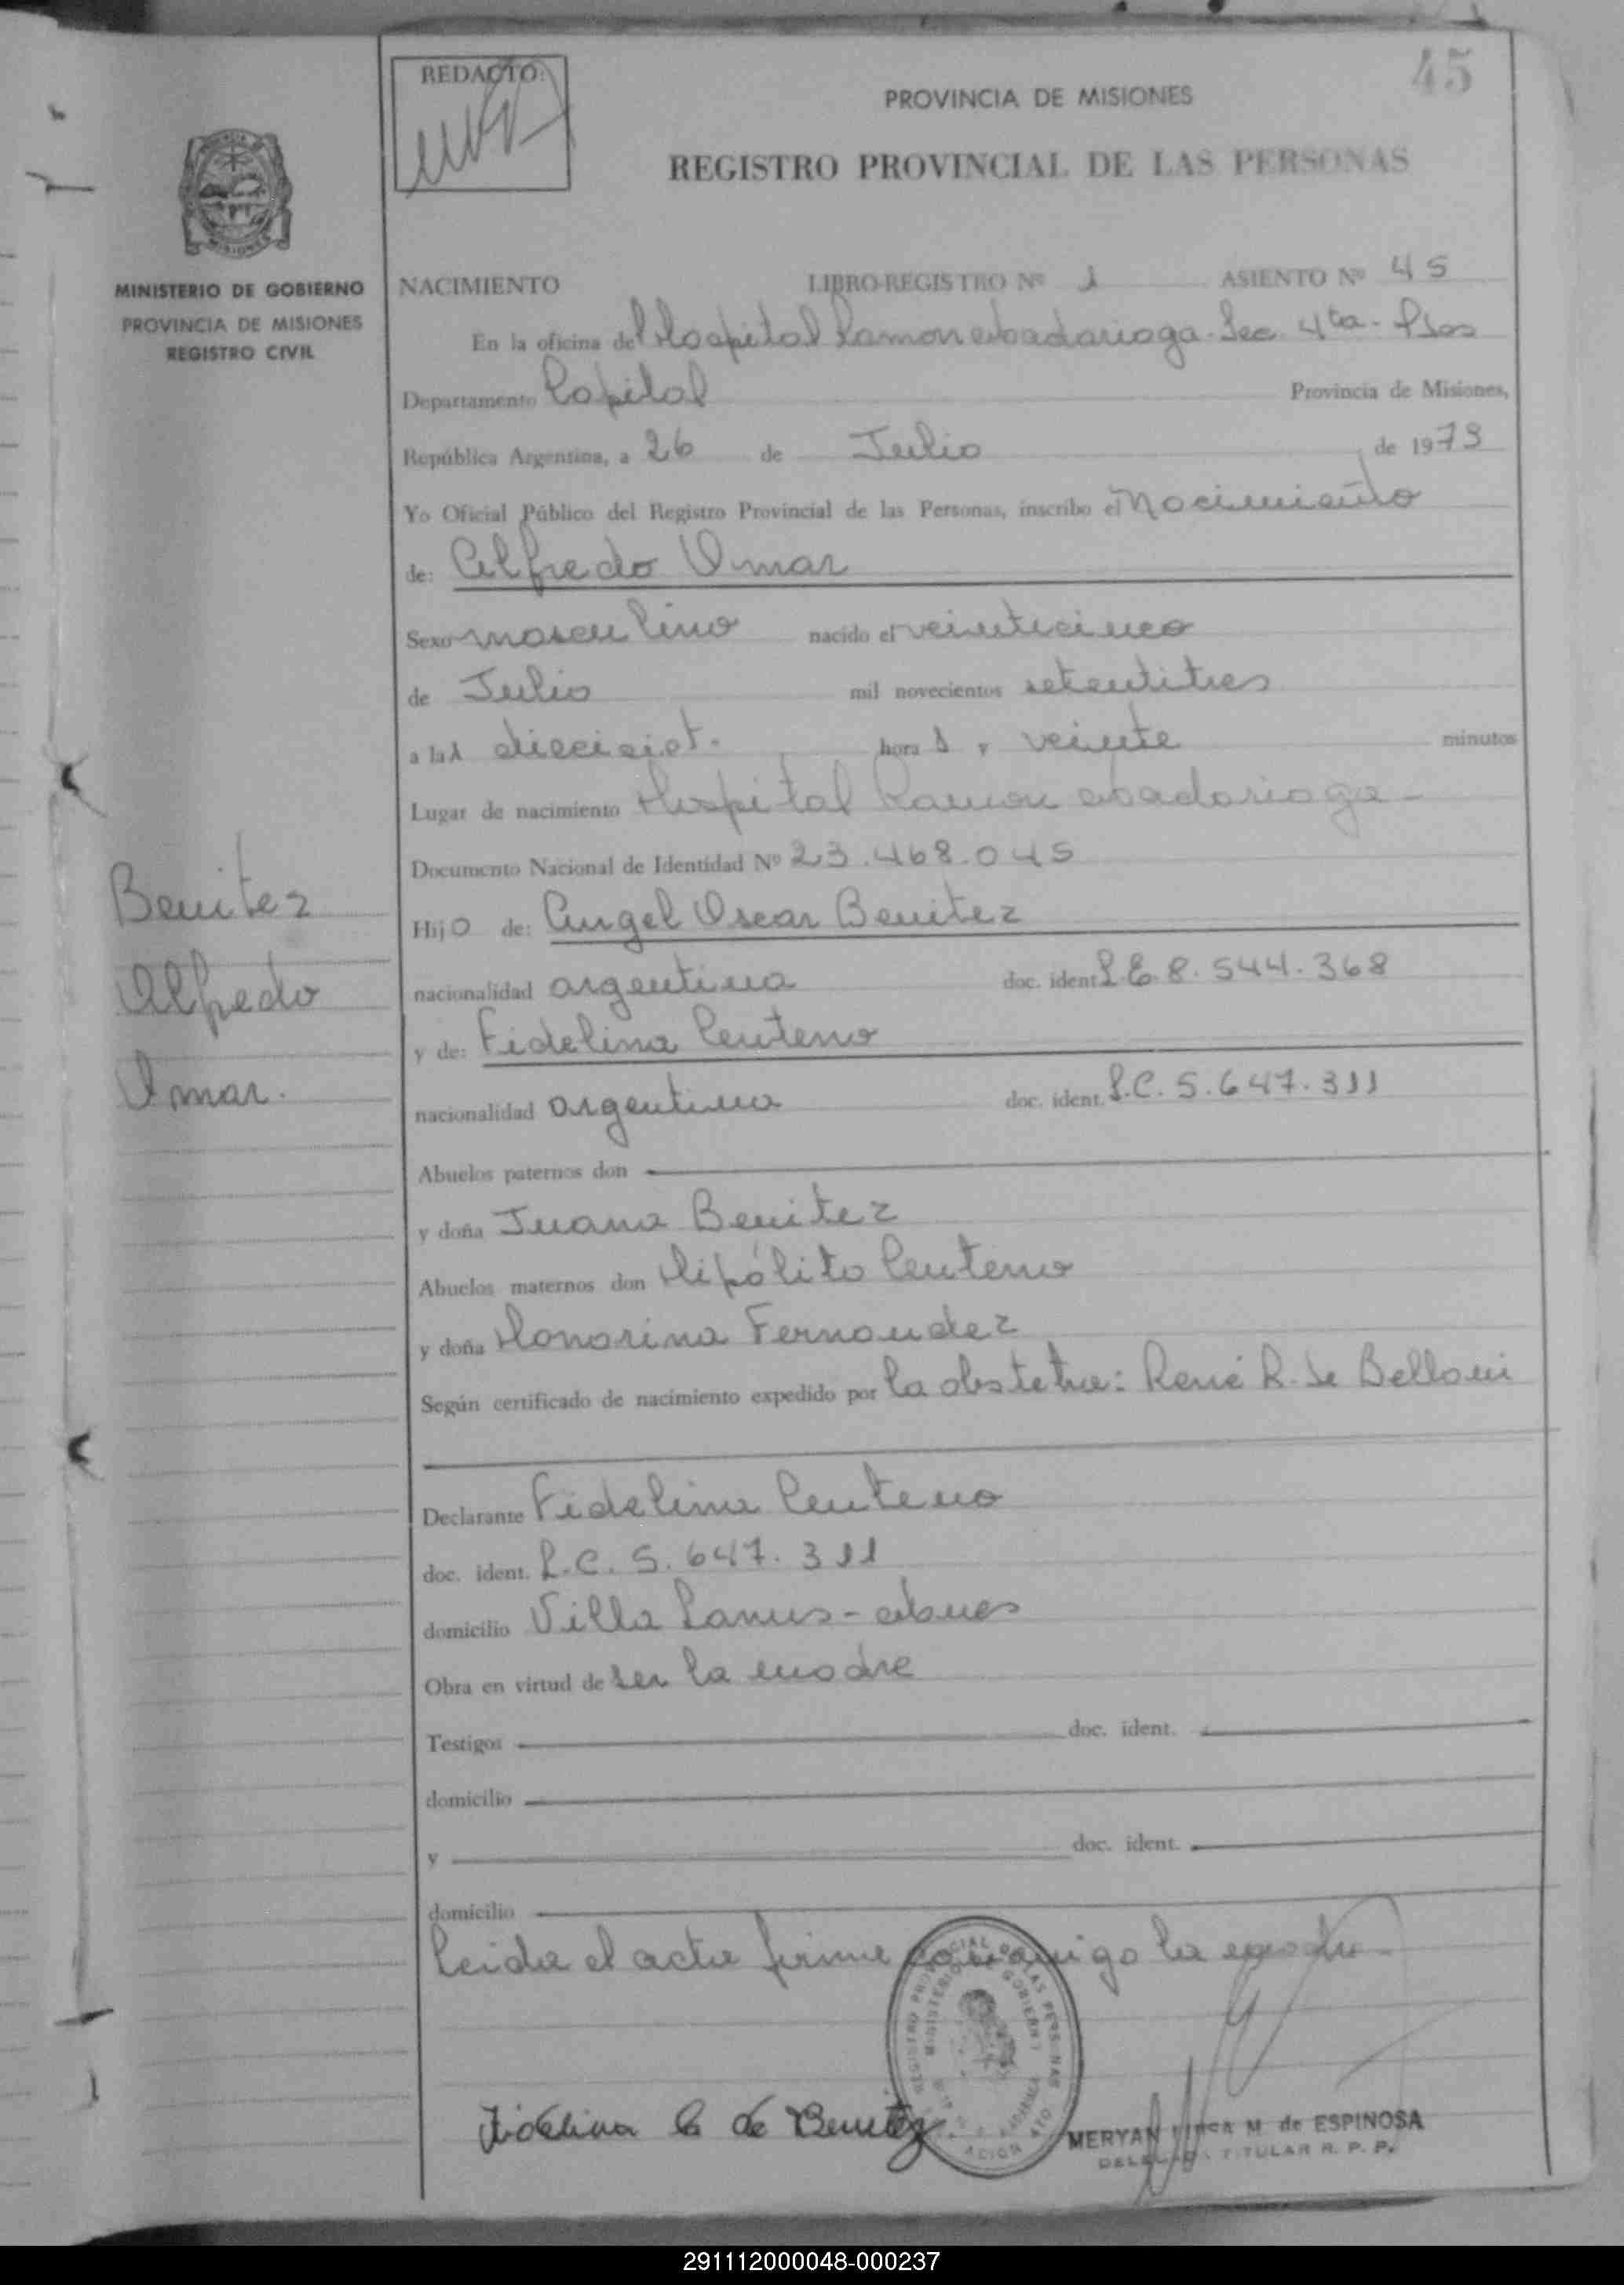 45
REDACTO:
PROVINCIA DE MISIONES
REGISTRO PROVINCIAL DE LAS PERSONAS
MINISTERIO DE GOBIERNO
PROVINCIA DE MISIONES
REGISTRO CIVIL
NACIMIENTO LIBRO-REGISTRO Nº 1 ASIENTO Nº 45
En la oficina del Hospital Ramon Madariaga - Sec. 4ta - Psas
Departamento Capital Provincia de Misiones,
República Argentina, a 26 de Julio de 1973
Yo Oficial Público del Registro Provincial de las Personas, inscribo el Nacimiento
de: Alfredo Omar
Sexo masculino nacido el veinticinco
de Julio mil novecientos setentitres
a las diecisiet. horas y veinte minutos
Lugar de nacimiento Hospital Ramon Madariaga -
Documento Nacional de Identidad Nº 23.468.045
Hijo de: Angel Oscar Benitez
nacionalidad argentina doc. ident. L.E. 8.544.368
y de: Fidelina Centeno
nacionalidad argentina doc. ident. L.C. 5.647.311
Abuelos paternos don
y doña Juana Benitez
Abuelos maternos don Hipólito Centeno
y doña Honorina Fernandez
Según certificado de nacimiento expedido por la obstetra: René R. de Belloni
Declarante Fidelina Centeno
doc. ident. L.C. 5.647.311
domicilio Villa Lanus - Mnes
Obra en virtud de ser la madre
Testigos doc. ident.
domicilio
y doc. ident.
domicilio
Leida el acta firma conmigo la madre -
Benitez
Alfredo
Omar.
Fidelina C de Benitez
MERYAN M. de ESPINOSA
DELEGADA TITULAR R. P. P.
291112000048-000237